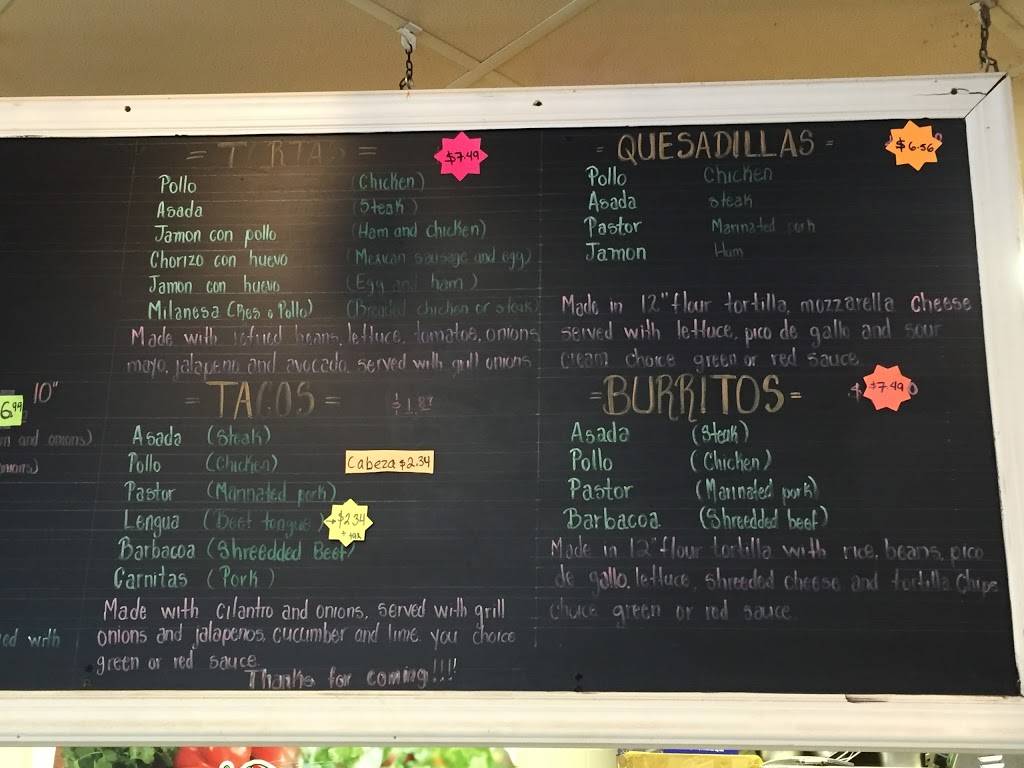 = TORTAS = $7.49
Pollo (Chicken)
Asada (Steak)
Jamon con pollo (Ham and chicken)
Chorizo con huevo (Mexican sausage and egg)
Jamon con huevo (Egg and ham)
Milanesa (Res o Pollo) (Breaded chicken or steak)
Made with refried beans, lettuce, tomatoe, onions
mayo, jalapeno and avocado, served with grill onions
= TACOS = $1.87
Asada (Steak)
Pollo (Chicken) Cabeza $2.34
Pastor (Marinated pork)
Lengua (Beef tongue) → $2.34 + tax
Barbacoa (Shreedded Beef)
Carnitas (Pork)
Made with Cilantro and onions, served with grill
onions and jalapenos, cucumber and lime. you choice
green or red sauce.
Thanks for coming!!!!
= QUESADILLAS = $6.56
Pollo Chicken
Asada steak
Pastor Marinated pork
Jamon Ham
Made in 12" flour tortilla, mozzarella cheese
served with lettuce, pico de gallo and sour
cream choice green or red sauce.
= BURRITOS = $7.49
Asada (Steak)
Pollo (Chicken)
Pastor (Marinated pork)
Barbacoa (Shreedded beef)
Made in 12" flour tortilla with rice, beans, pico
de gallo, lettuce, shreeded cheese and tortilla Chips
choice green or red sauce.
10"
6.99
and onions)
with